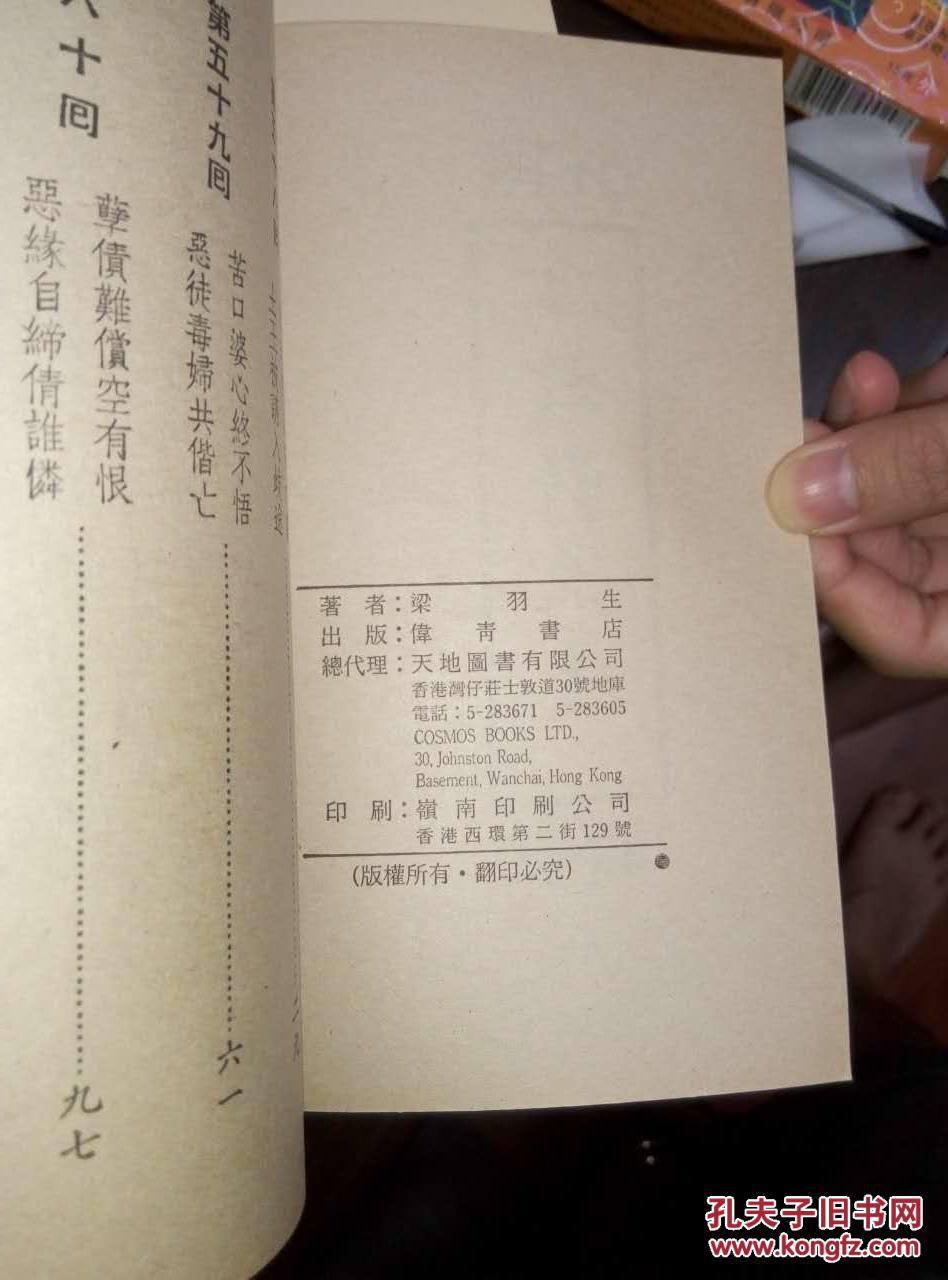 著者：梁羽生
出版：偉青書店
總代理：天地圖書有限公司
香港灣仔莊士敦道30號地庫
電話：5-283671 5-283605
COSMOS BOOKS LTD.,
30, Johnston Road,
Basement, Wanchai, Hong Kong
印刷：嶺南印刷公司
香港西環第二街129號
(版權所有·翻印必究)
第五十九囘
苦口婆心終不悟
惡徒毒婦共偕亡
六一
十囘
孽債難償空有恨
惡緣自締倩誰憐
九七
孔夫子旧书网
www.kongfz.com